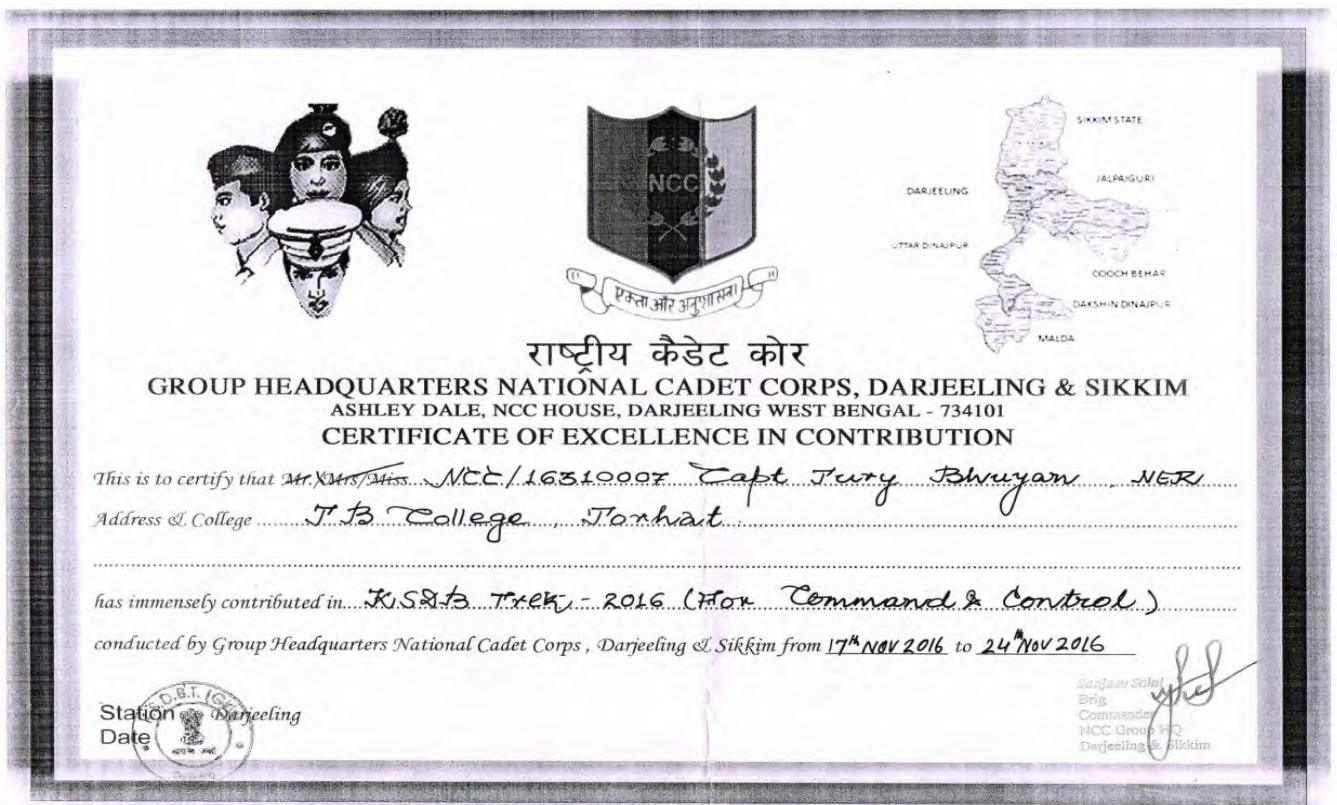 SIKKIM STATE
JALPAIGURI
DARJEELING
UTTAR DINAJPUR
COOCH BEHAR
DAKSHIN DINAJPUR
MALDA
NCC
एकता और अनुशासन
राष्ट्रीय कैडेट कोर
GROUP HEADQUARTERS NATIONAL CADET CORPS, DARJEELING & SIKKIM
ASHLEY DALE, NCC HOUSE, DARJEELING WEST BENGAL - 734101
CERTIFICATE OF EXCELLENCE IN CONTRIBUTION
This is to certify that Mr./Mrs/Miss NCC/16310007 Capt Jury Bhuyan, NER
Address & College J B College, Jorhat
has immensely contributed in KSDB Trek - 2016 (For Command & Control)
conducted by Group Headquarters National Cadet Corps, Darjeeling & Sikkim from 17th NOV 2016 to 24th NOV 2016
Station Darjeeling
Date
Sanjeev Saini
Brig
Commander
NCC Group HQ
Darjeeling & Sikkim